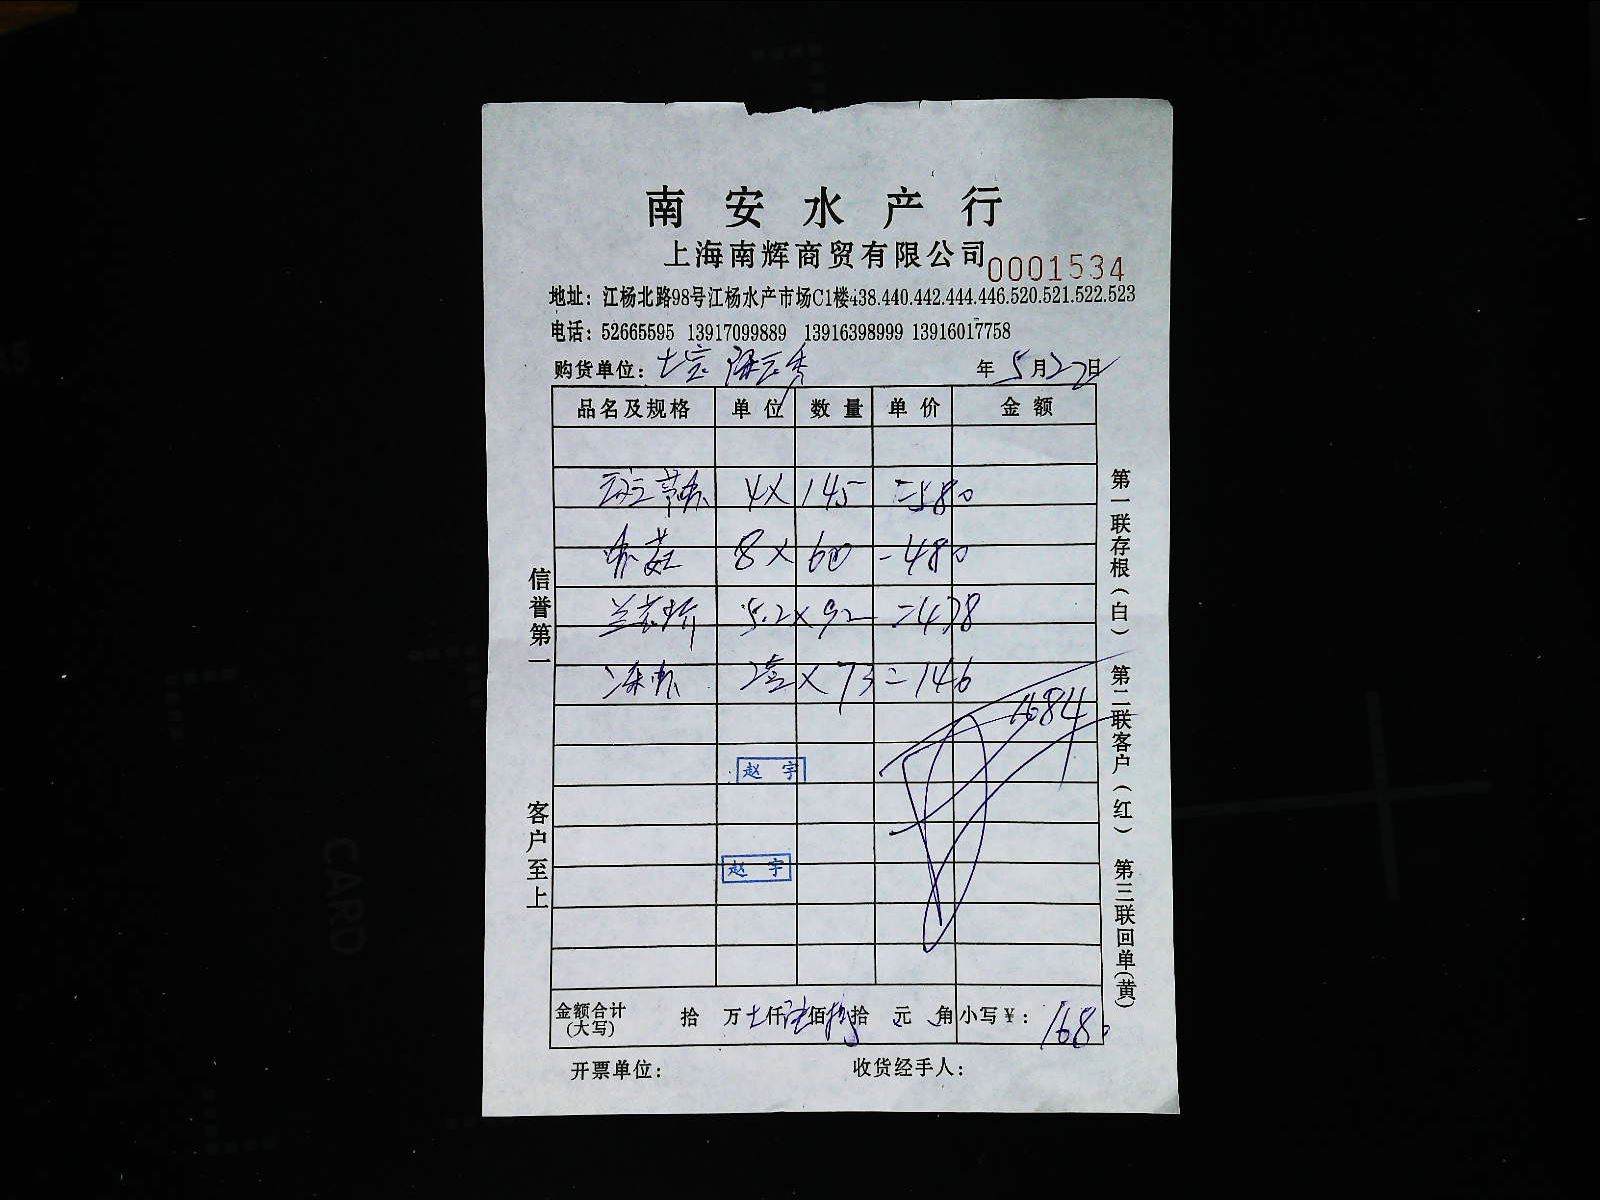 南安水产行
上海南辉商贸有限公司
0001534
地址：江杨北路98号江杨水产市场C1楼438.440.442.444.446.520.521.522.523
电话：52665595 13917099889 13916398999 13916017758
购货单位：
年 5月22日
品名及规格 单位 数量 单价 金额
4× 145 =580
8× 60 -480
5.2×92 =478
× 73 =146
1684
赵宇
赵宇
金额合计(大写) 拾 万 仟 佰 拾 元 角 小写¥：1680
开票单位： 收货经手人：
信誉第一
客户至上
第一联存根(白) 第二联客户(红) 第三联回单(黄)